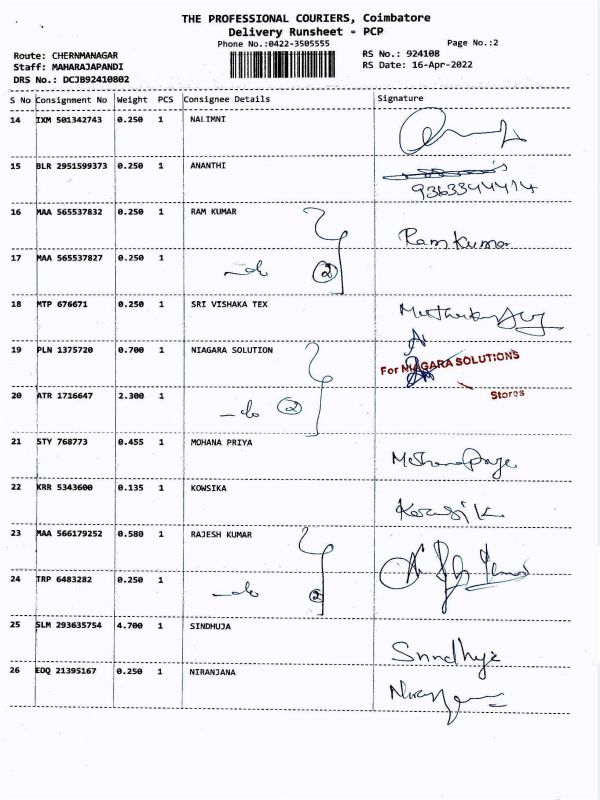 THE PROFESSIONAL COURIERS, Coimbatore
Delivery Runsheet - PCP
Phone No.:0422-3505555 Page No.:2
Route: CHERNMANAGAR RS No.: 924108
Staff: MAHARAJAPANDI RS Date: 16-Apr-2022
DRS No.: DCJB92410802
S No Consignment No Weight PCS Consignee Details Signature
14 IXM 501342743 0.250 1 NALIMNI
15 BLR 2951599373 0.250 1 ANANTHI
9363344414
16 MAA 565537832 0.250 1 RAM KUMAR Ram Kumar
17 MAA 565537827 0.250 1 -do 2
18 MTP 676671 0.250 1 SRI VISHAKA TEX
19 PLN 1375720 0.700 1 NIAGARA SOLUTION For NIAGARA SOLUTIONS
20 ATR 1716647 2.300 1 -do 2 Stores
21 STY 768773 0.455 1 MOHANA PRIYA
22 KRR 5343600 0.135 1 KOWSIKA
23 MAA 566179252 0.580 1 RAJESH KUMAR
24 TRP 6483282 0.250 1 -do 2
25 SLM 293635754 4.700 1 SINDHUJA
26 EDQ 21395167 0.250 1 NIRANJANA